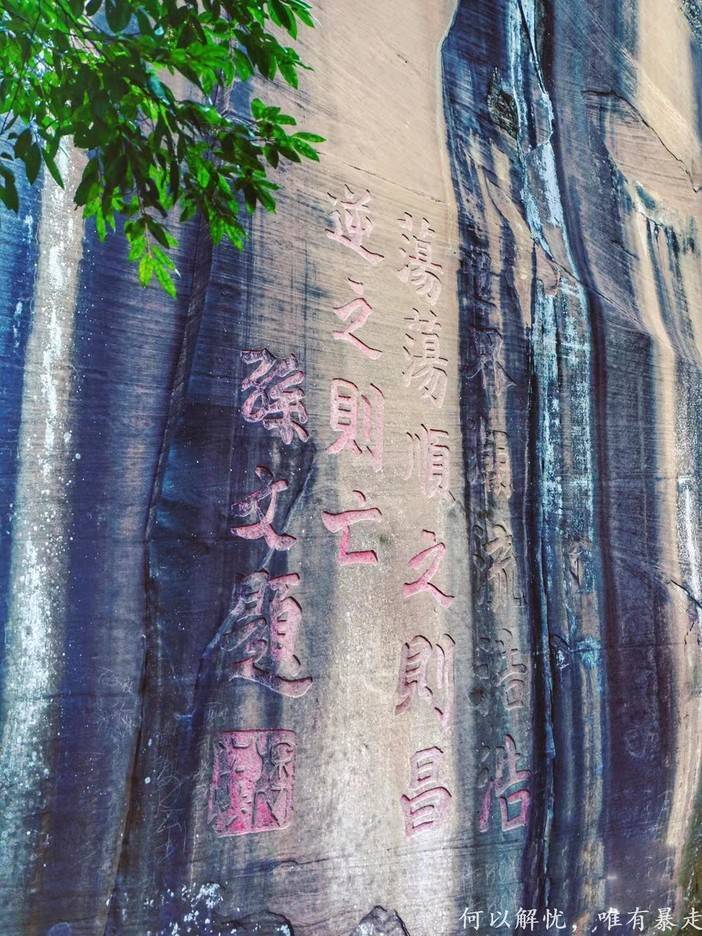 世界潮流浩浩
蕩蕩順之則昌
逆之則亡
孫文題
何以解忧，唯有暴走